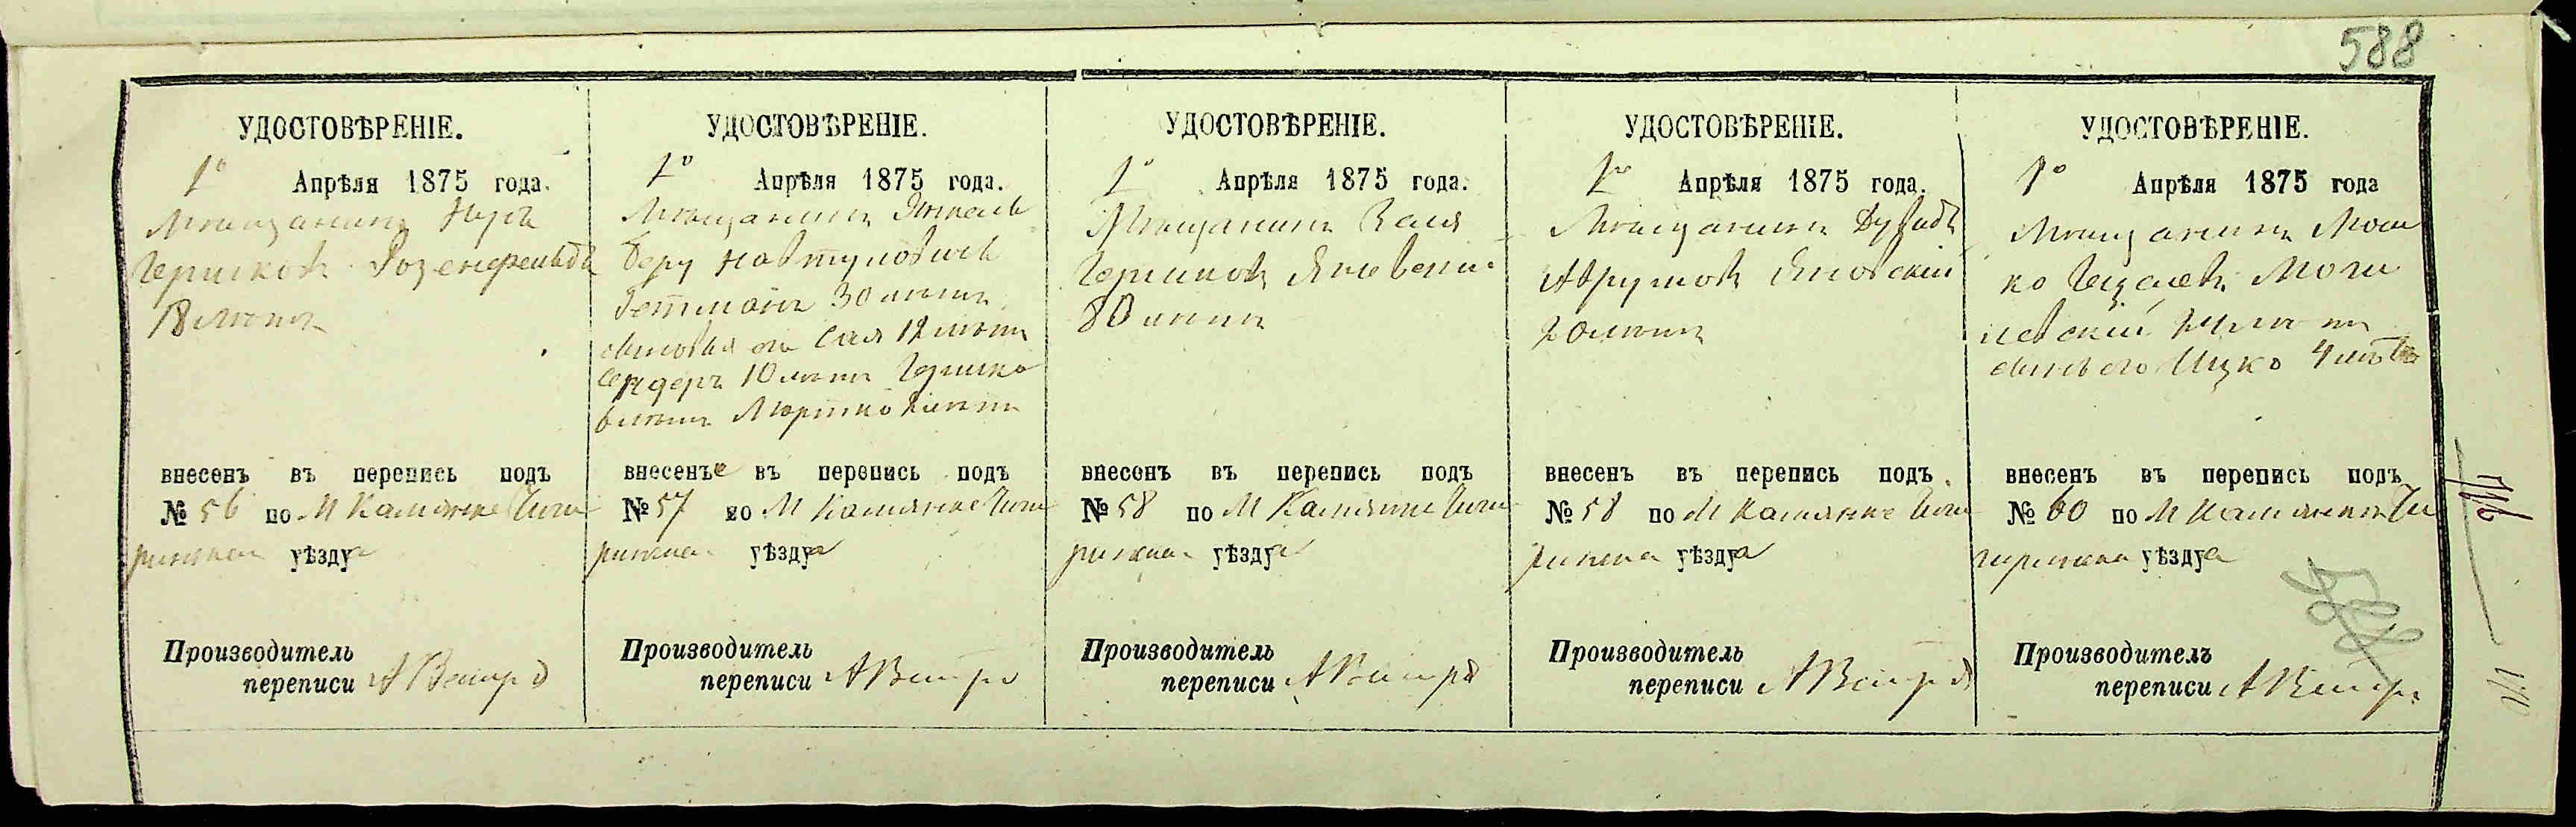 588
УДОСТОВѢРЕНІЕ.
1º Апрѣля 1875 года.
Мѣщанинъ
Гершковъ Розенфельдъ
18 лѣтъ
внесенъ въ перепись подъ
№ 56 по М Камянке Чиги
ринскаг уѣзда
Производитель
переписи А
УДОСТОВѢРЕНІЕ.
1º Апрѣля 1875 года.
Мѣщанинъ Янкель
Беру Навтуловичъ
Гетманъ 30 лѣтъ
сыновья его 12 лѣтъ
Сендеръ 10 лѣтъ Гершко
6 лѣтъ
внесены въ перепись подъ
№ 57 по М Камянке Чиги
ринскаг уѣзда
Производитель
переписи А
УДОСТОВѢРЕНІЕ.
1º Апрѣля 1875 года.
Мѣщанинъ
Гершковъ
80 лѣтъ
внесенъ въ перепись подъ
№ 58 по М Камянке Чиги
ринскаг уѣзда
Производитель
переписи А
УДОСТОВѢРЕНІЕ.
1го Апрѣля 1875 года.
Мѣщанинъ Дувидъ
Аврумовъ
20 лѣтъ
внесенъ въ перепись подъ
№ 58 по М Камянке Чиги
ринска уѣзда
Производитель
переписи А
УДОСТОВѢРЕНІЕ.
1º Апрѣля 1875 года
Мѣщанинъ Мош
ко Моги
левскій лѣтъ
сынъ его Ицко 4 лѣтъ
внесенъ въ перепись подъ
№ 60 по М Камянкѣ Чи
гиринска уѣзда
Производитель
переписи А